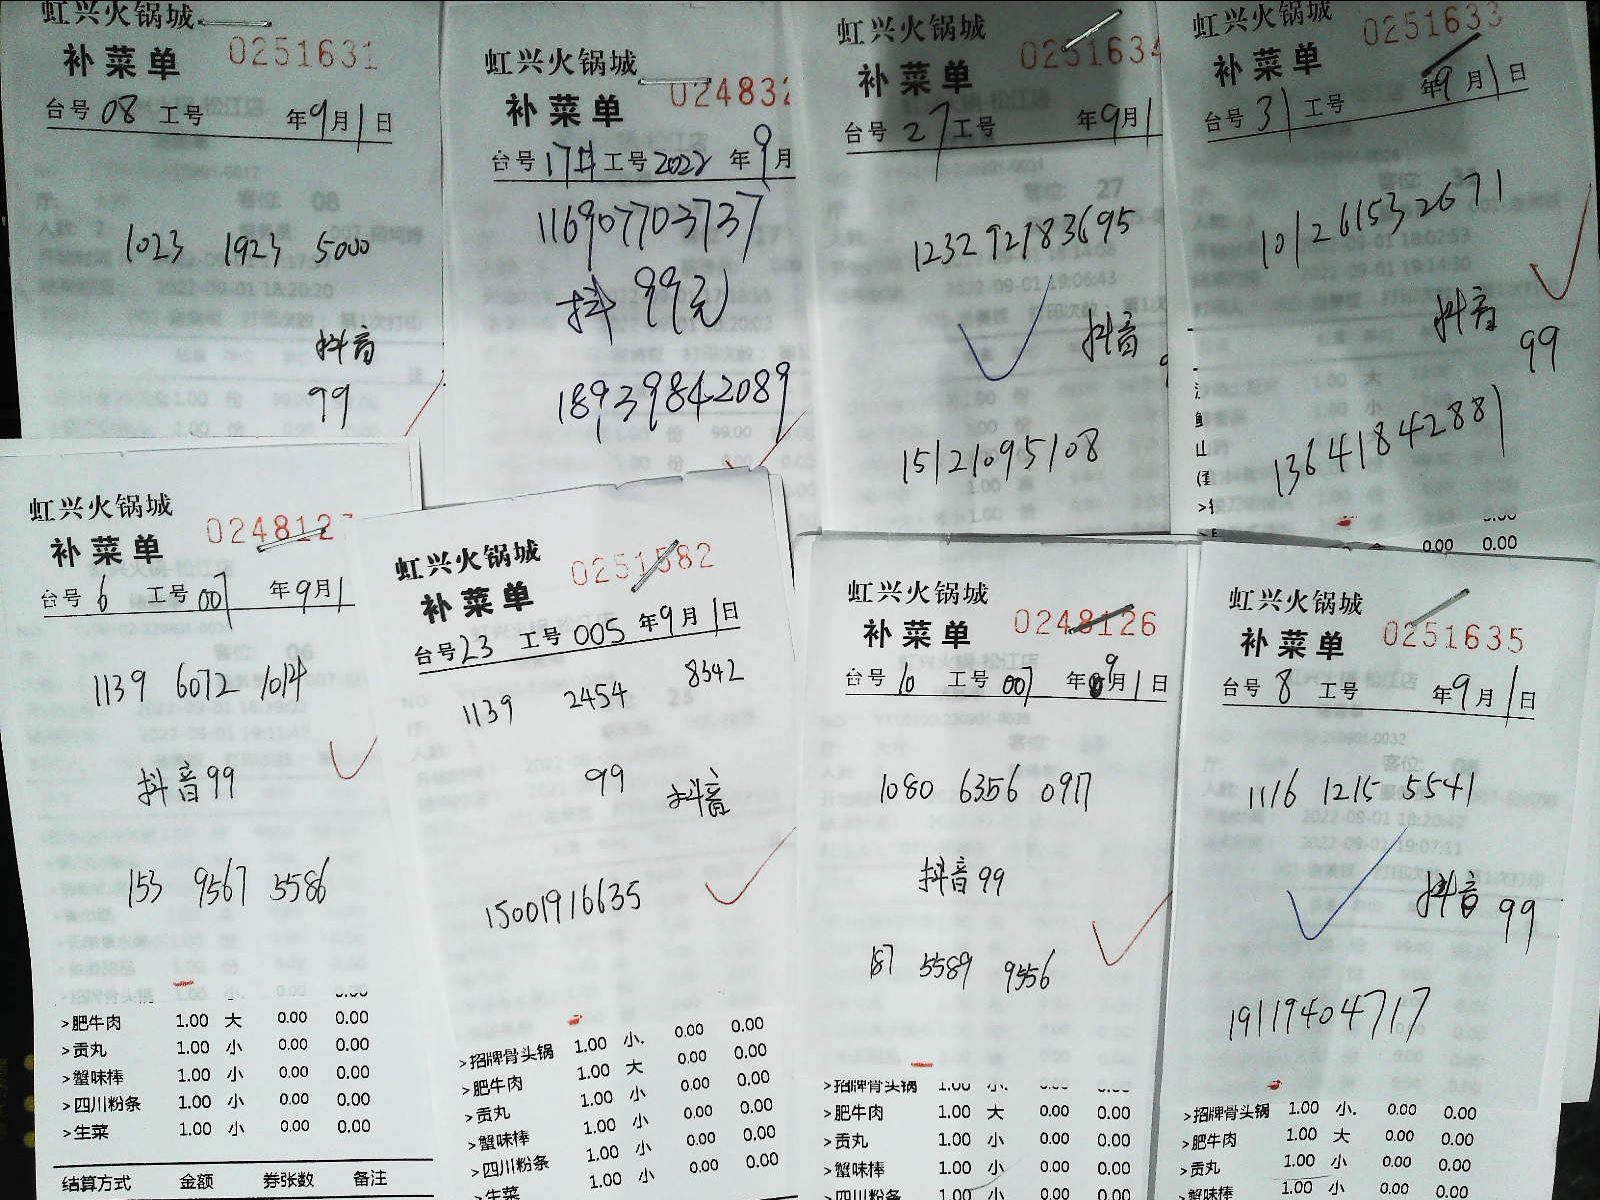 虹兴火锅城
补菜单 0251631
台号 08 工号 年9月1日
1023 1923 5000
抖音
99
虹兴火锅城
补菜单 024832
台号 17 工号 2022 年9月
116907703737
抖 99元
18939842089
虹兴火锅城
补菜单 0251634
台号 27 工号 年9月1
123292183695
抖音
15121095108
虹兴火锅城
补菜单 0251633
台号 31 工号 年9月1日
101261532671
抖音
99
13641842881
0.00 0.00
虹兴火锅城
补菜单 024812
台号 6 工号 007 年9月1
1139 6072 1014
抖音99
153 9567 5586
>招牌骨头锅 1.00 小. 0.00 0.00
>肥牛肉 1.00 大 0.00 0.00
>贡丸 1.00 小 0.00 0.00
>蟹味棒 1.00 小 0.00 0.00
>四川粉条 1.00 小 0.00 0.00
>生菜 1.00 小 0.00 0.00
结算方式 金额 券张数 备注
虹兴火锅城
补菜单 0251582
台号 23 工号 005 年9月1日
1139 2454 8342
99 抖音
15001916635
>招牌骨头锅 1.00 小. 0.00 0.00
>肥牛肉 1.00 大 0.00 0.00
>贡丸 1.00 小 0.00 0.00
>蟹味棒 1.00 小 0.00 0.00
>四川粉条 1.00 小 0.00 0.00
>生菜 1.00 小 0.00 0.00
虹兴火锅城
补菜单 0248126
台号 10 工号 007 年9月1日
1080 6356 0917
抖音99
187 5589 9556
>招牌骨头锅 1.00 小. 0.00 0.00
>肥牛肉 1.00 大 0.00 0.00
>贡丸 1.00 小 0.00 0.00
>蟹味棒 1.00 小 0.00 0.00
>四川粉条 1.00 小 0.00 0.00
虹兴火锅城
补菜单 0251635
台号 8 工号 年9月1日
1116 1215 5541
抖音
99
19119404717
>招牌骨头锅 1.00 小. 0.00 0.00
>肥牛肉 1.00 大 0.00 0.00
>贡丸 1.00 小 0.00 0.00
>蟹味棒 1.00 小 0.00 0.00